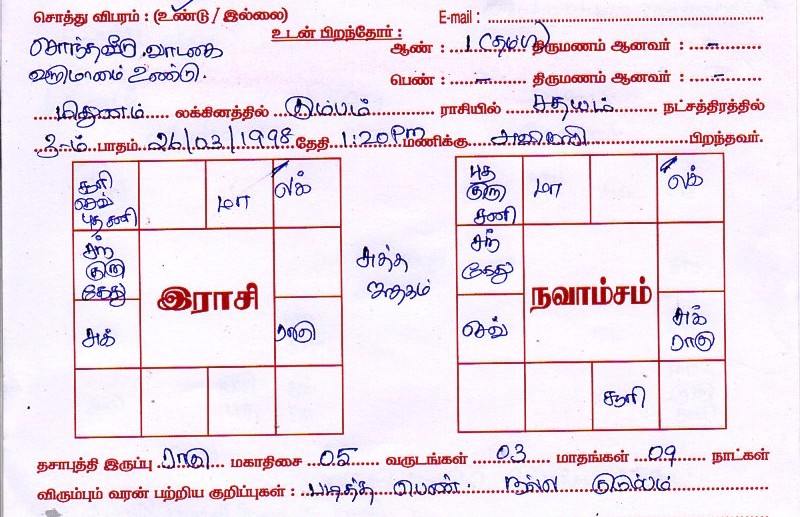 சொத்து விபரம் : (உண்டு / இல்லை)
E-mail :
சொந்தவீடு வாடகை
வருமானம் உண்டு.
உடன் பிறந்தோர் :
ஆண் : 1 (தம்பி) திருமணம் ஆனவர் : -
பெண் : - திருமணம் ஆனவர் : -
மிதுனம் லக்கினத்தில் கும்பம் ராசியில் சதயம் நட்சத்திரத்தில்
3-ம் பாதம் 26/03/1998 தேதி 1:20 Pm மணிக்கு பிறந்தவர்.
சூரி
செவ்
புத சனி
மா
லக்
சந்
குரு
கேது
இராசி
சுக்
ராகு
புத
குரு
சனி
மா
லக்
சந்
கேது
நவாம்சம்
செவ்
சுக்
ராகு
சூரி
தசாபுத்தி இருப்பு ராகு மகாதிசை 05 வருடங்கள் 03 மாதங்கள் 09 நாட்கள்
விரும்பும் வரன் பற்றிய குறிப்புகள் : படித்த பெண். நல்ல குடும்பம்